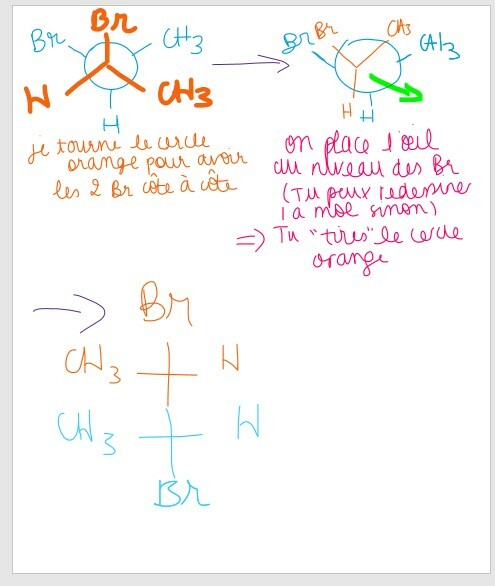 Br
Br CH3
H CH3
H
je tourne le cercle
orange pour avoir
les 2 Br côte à côte
Br Br CH3
CH3
H H
on place l'oeil
au niveau des Br
(Tu peux redessine
la mol sinon)
=> Tu "tires" le cercle
orange
Br
CH3 H
CH3 H
Br